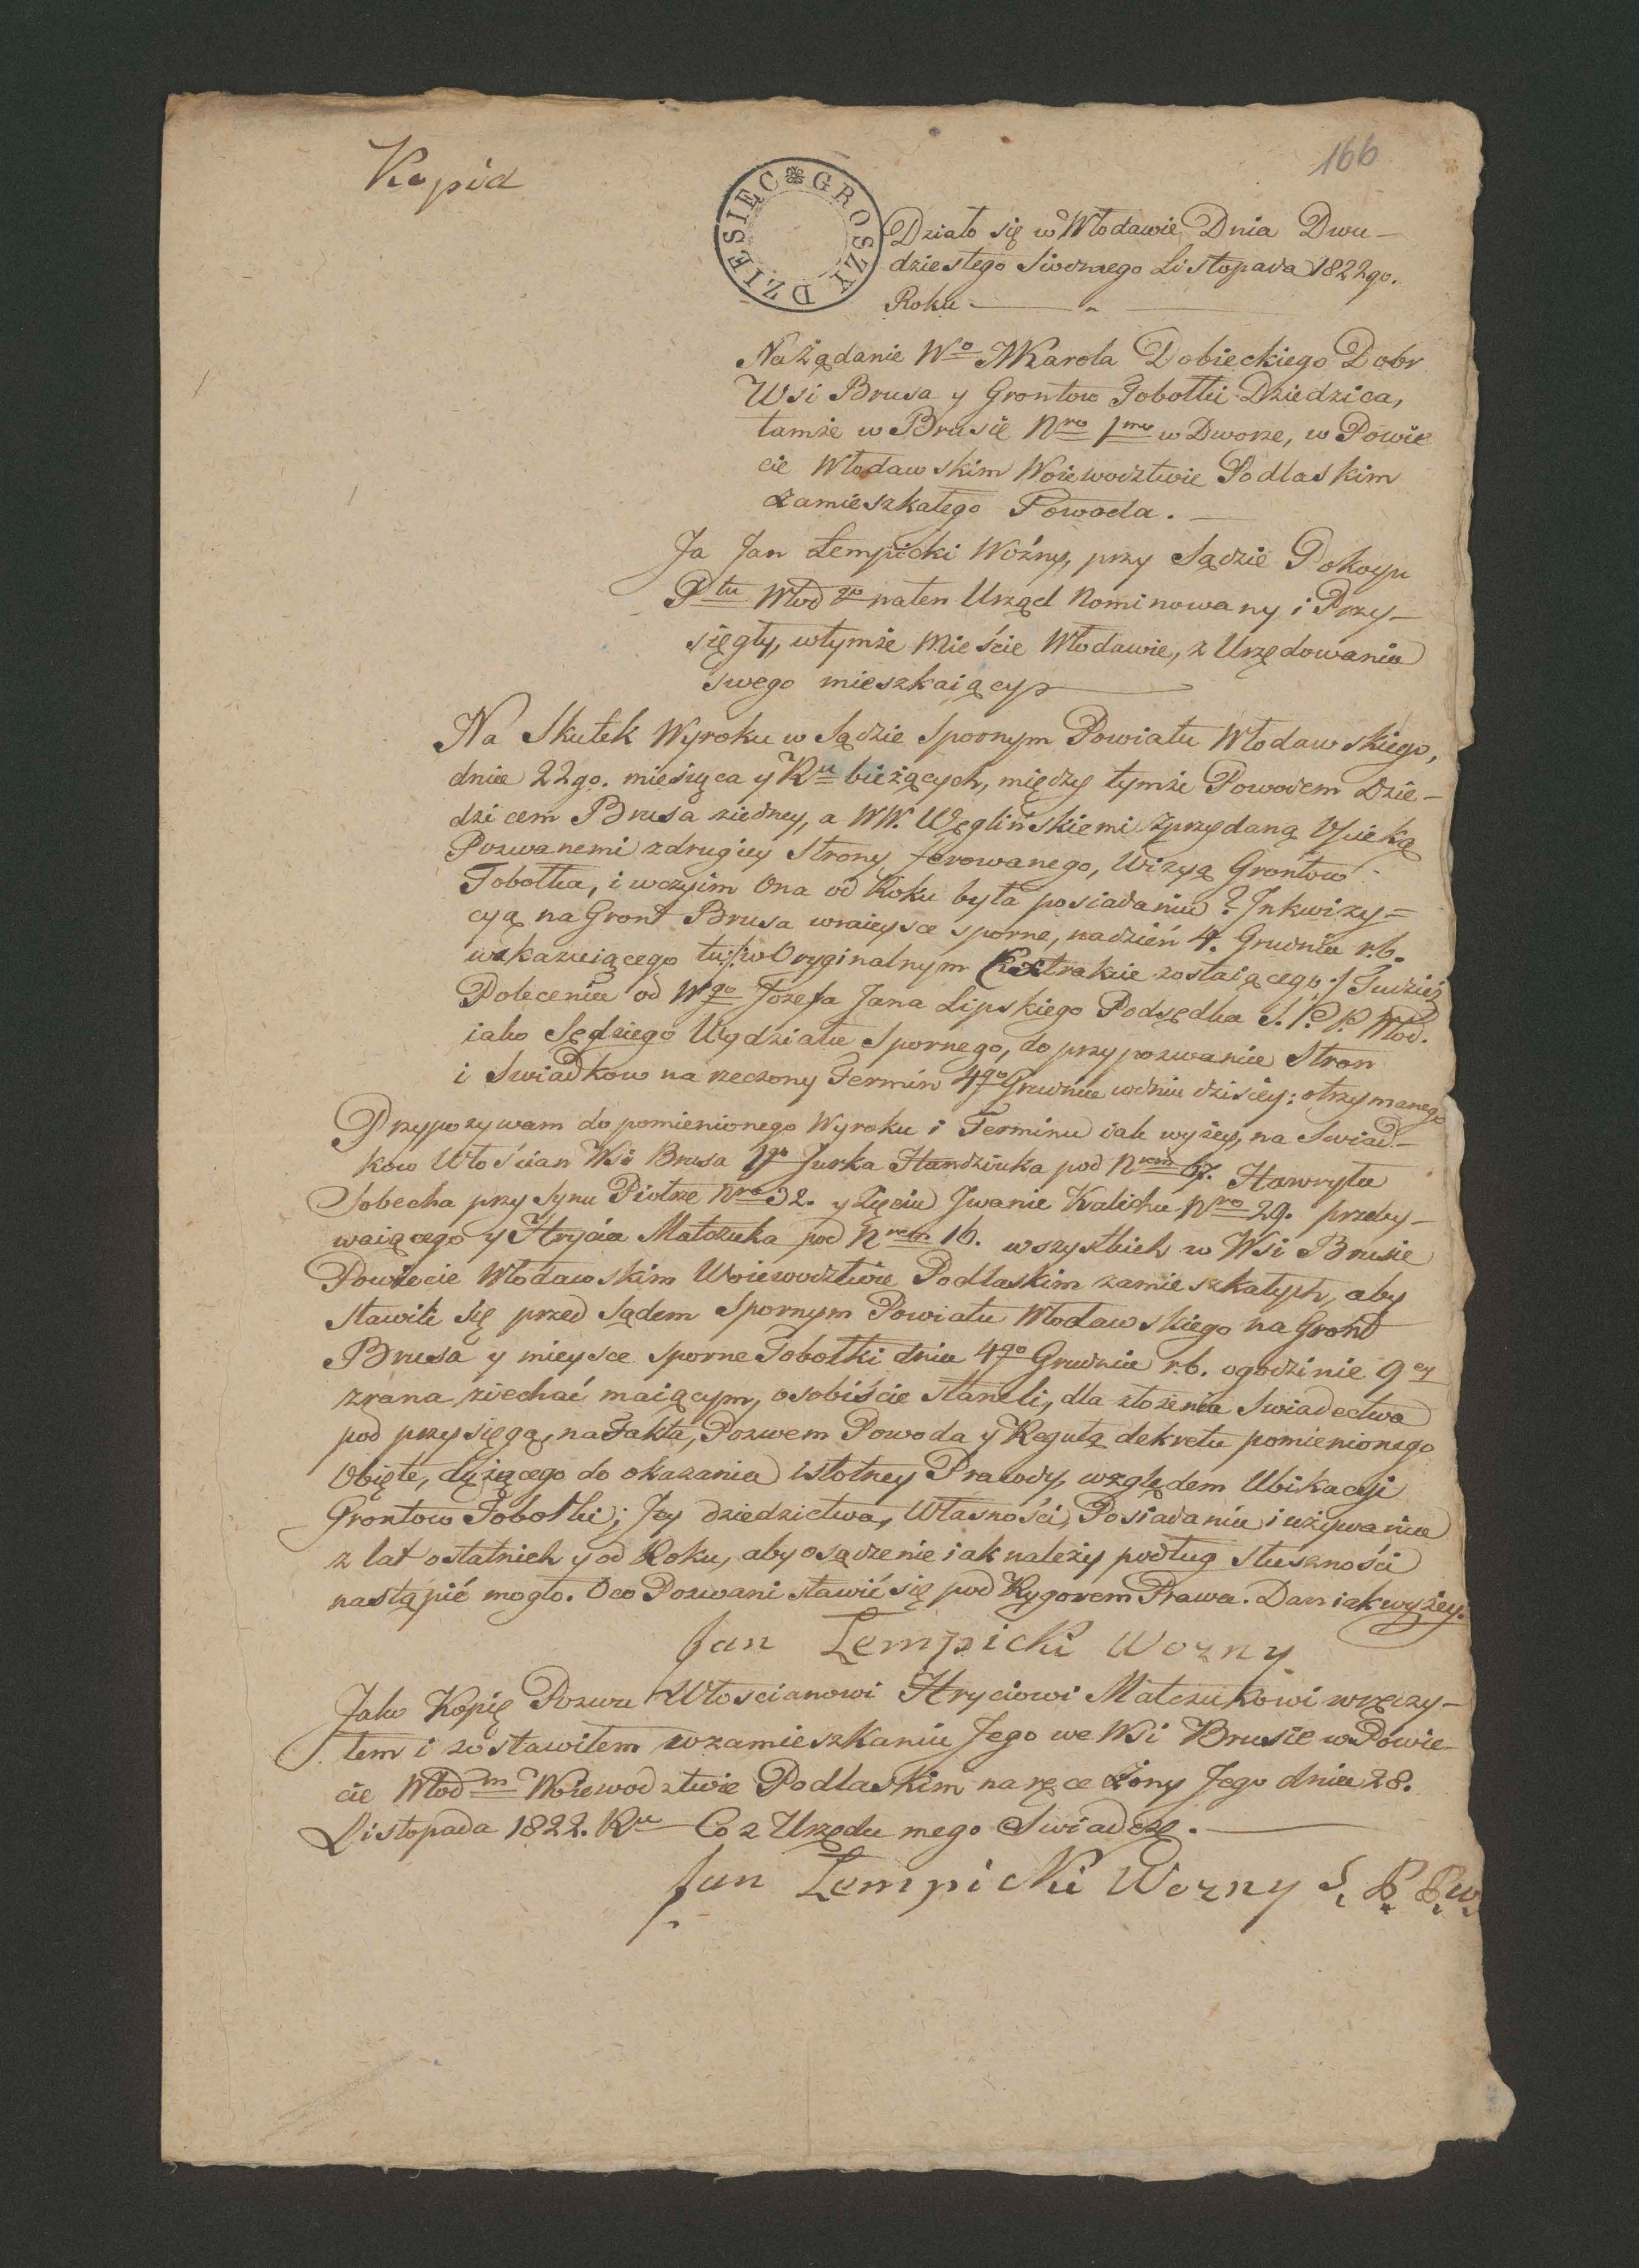 Kopia
166
DZIESIĘC GROSZY
Działo się w Włodawie Dnia Dwu-
dziestego Siodmego Listopada 1822go.
Roku
Na Żądanie Wo Karola Dobieckiego Dobr
Wsi Brusa y Grontow Tobołki Dziedzica,
tamże w Brusie Nro 1mo w Dworze, w Powie
cie Włodawskim Woiewodztwie Podlaskim
zamieszkałego Powoda.
Ja Jan Łempicki Woźny, przy Sądzie Pokoyu
Ptu Włod go na ten Urząd Nominowany i Przy-
sięgły, w tymże Mieście Włodawie, z Urzędowania
swego mieszkaiący
Na Skutek Wyroku w Sądzie Spornym Powiatu Włodawskiego,
dnia 22go. miesiąca y Ru bieżących, między tymże Powodem Dzie-
dzicem Brusa ziedney, a WW. Węglińskiemi z przydaną Opieką
Pozwanemi z drugiey Strony ferowanego, Wizyą Grontow
Tobołka, i w czyim Ona od Roku była posiadaniu? Inkwizy=
cyą na Gront Brusa w mieysce sporne, na dzień 4. Grudnia r.b.
wskazuiącego tu w Oryginalnym Extrakcie zostaiącego / Tudzież
Polecenia od Wgo Jozefa Jana Lipskiego Podsędka S. P. P. Włod.
iako Sędziego Wydziału Spornego, do przypozwania Stron
i Swiadkow na rzeczony Termin 4go Grudnia w dniu dzisiey: otrzymanego
Przypozywam do pomienionego Wyroku i Terminu iak wyżey, na Swiad-
kow Włościan Wsi Brusa 1go Jurka Handziuka pod Nrem 67. Hawryła
Sobecha przy Synu Piotrze Nro 32. y Zięciu Jwanie Kalichu Nro 29. przeby-
waiącego y Hrycia Matczuka pod Nrem 10. wszystkich w Wsi Brusie
Powiecie Włodawskim Woiewodztwie Podlaskim zamieszkałych, aby
stawili się przed Sądem Spornym Powiatu Włodawskiego na Gront
Brusa y mieysce Sporne Tobołki dnia 4go Grudnia r.b. o godzinie 9ey
zrana ziechać maiącym, osobiście staneli, dla złożenia Swiadectwa
pod przysięgą, na Fakta, Pozwem Powoda y Regułą dekretu pomienionego
Obięte, dążącego do okazania istotney Prawdy, względem Ubikacyi
Grontow Tobołki; Jey dziedzictwa, Własności, Posiadania i używania
z lat ostatnich y od Roku, aby osądzenie iak należy podług słuszności
nastąpić mogło. Oco Pozwani stawić się pod Rygorem Prawa. Dan iak wyżey.
Jan Łempicki Wozny
Jako Kopię Pozwu Włoscianowi Hryciowi Matczukowi wręczy-
łem i zostawiłem w zamieszkaniu Jego we Wsi Brusie w Powie-
cie Włod m Woiewodztwie Podlaskim na ręce Żony Jego dnia 28.
Listopada 1822. Ru Co z Urzędu mego Swiadczę.
Jan Łempicki Wozny S. P. P. W.